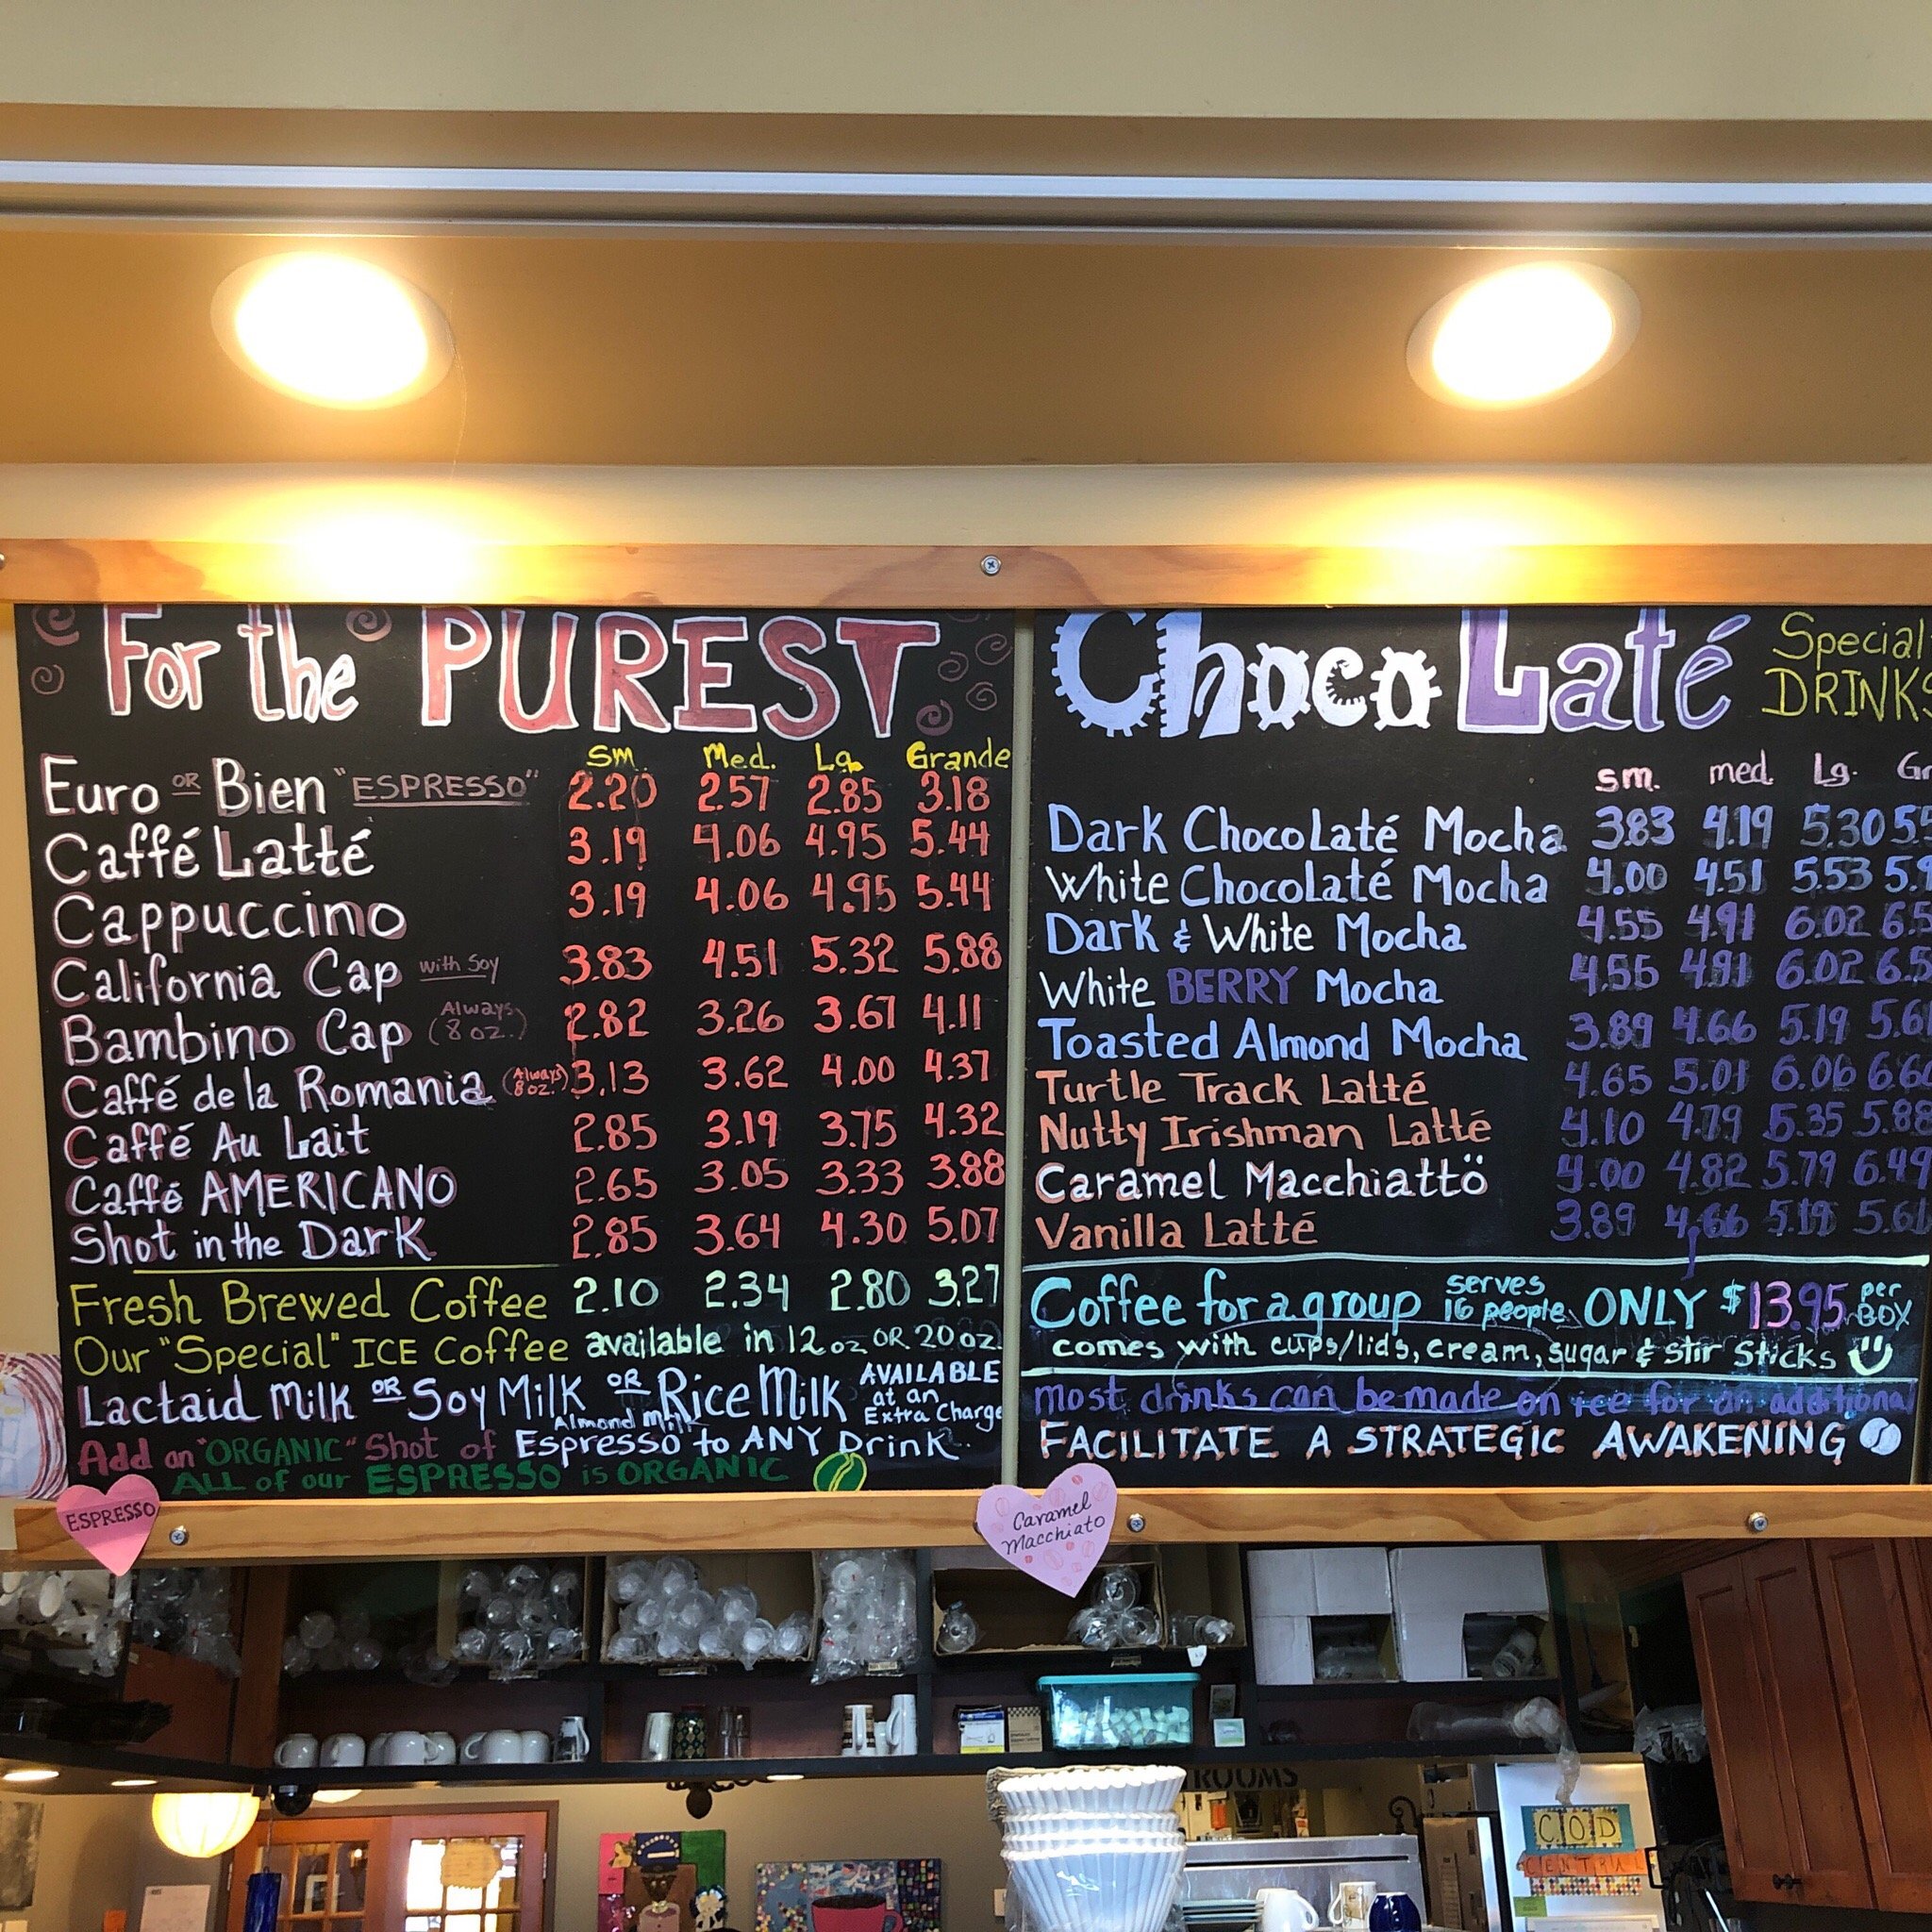 For the PUREST
Sm. Med. Lg. Grande
Euro OR Bien "ESPRESSO" 2.20 2.57 2.85 3.18
Caffé Latté 3.19 4.06 4.95 5.44
Cappuccino 3.19 4.06 4.95 5.44
California Cap with Soy 3.83 4.51 5.32 5.88
Bambino Cap (Always 8 oz.) 2.82 3.26 3.67 4.11
Caffé de la Romania (Always 8 oz.) 3.13 3.62 4.00 4.37
Caffé Au Lait 2.85 3.19 3.75 4.32
Caffé AMERICANO 2.65 3.05 3.33 3.88
Shot in the Dark 2.85 3.64 4.30 5.07
Fresh Brewed Coffee 2.10 2.34 2.80 3.27
Our "Special" ICE Coffee available in 12 oz OR 20 oz
Lactaid Milk OR Soy Milk OR Rice Milk AVAILABLE at an Extra Charge
Almond milk
Add an "ORGANIC" Shot of Espresso to ANY Drink.
ALL of our ESPRESSO is ORGANIC
ESPRESSO
ChocoLaté Special DRINKS
sm. med. Lg. Gr
Dark ChocoLaté Mocha 3.83 4.19 5.30
White Chocolaté Mocha 4.00 4.51 5.53 5.9
Dark & White Mocha 4.55 4.91 6.02 6.5
White BERRY Mocha 4.55 4.91 6.02 6.5
Toasted Almond Mocha 3.89 4.66 5.19 5.6
Turtle Track Latté 4.65 5.01 6.06 6.6
Nutty Irishman Latté 4.10 4.79 5.35 5.88
Caramel Macchiattö 4.00 4.82 5.79 6.49
Vanilla Latté 3.89 4.66 5.19 5.6
Coffee for a group serves 16 people ONLY $13.95 per BOX
comes with cups/lids, cream, sugar & stir sticks
most drinks can be made on ice for an additional
FACILITATE A STRATEGIC AWAKENING
Caramel
Macchiato
ROOMS
COD
CENTRAL